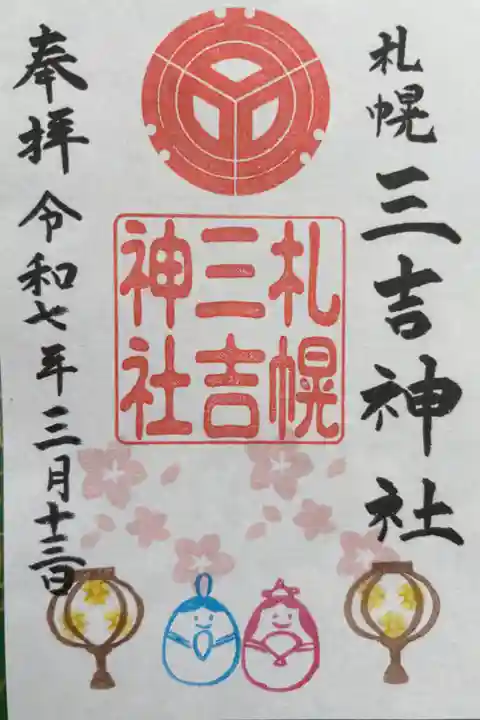 札幌三吉神社
札幌
三吉
神社
奉拝 令和七年三月十三日